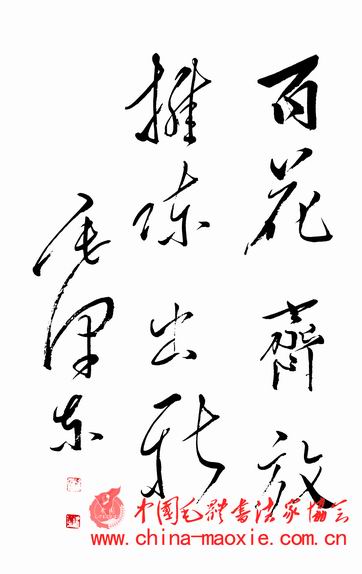 百花齊放
推陈出新
毛泽东
中国毛体书法家协会
www.china-maoxie.com.cn